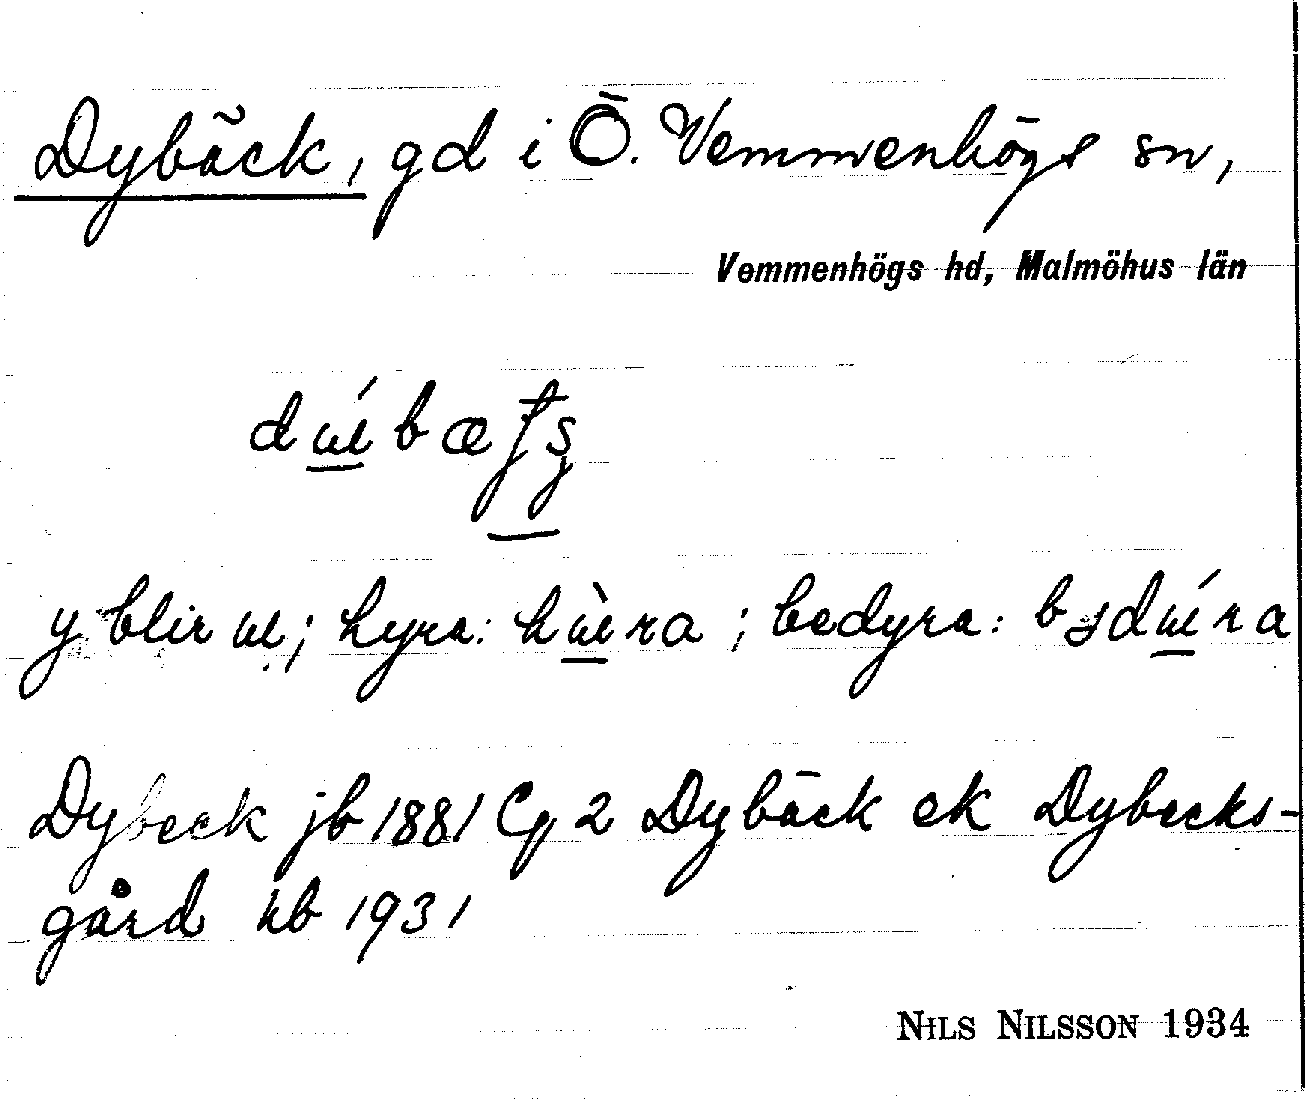 Dybäck, gd i Ö. Vemmenhögs sn,
Vemmenhögs hd, Malmöhus län
y blir ɯ; hyra: hɯ̀ra; bedyra: bədɯ́ra
Dybeck jb 1881 Cg 2 Dybäck ek Dybecks-
gård kb 1931
NILS NILSSON 1934